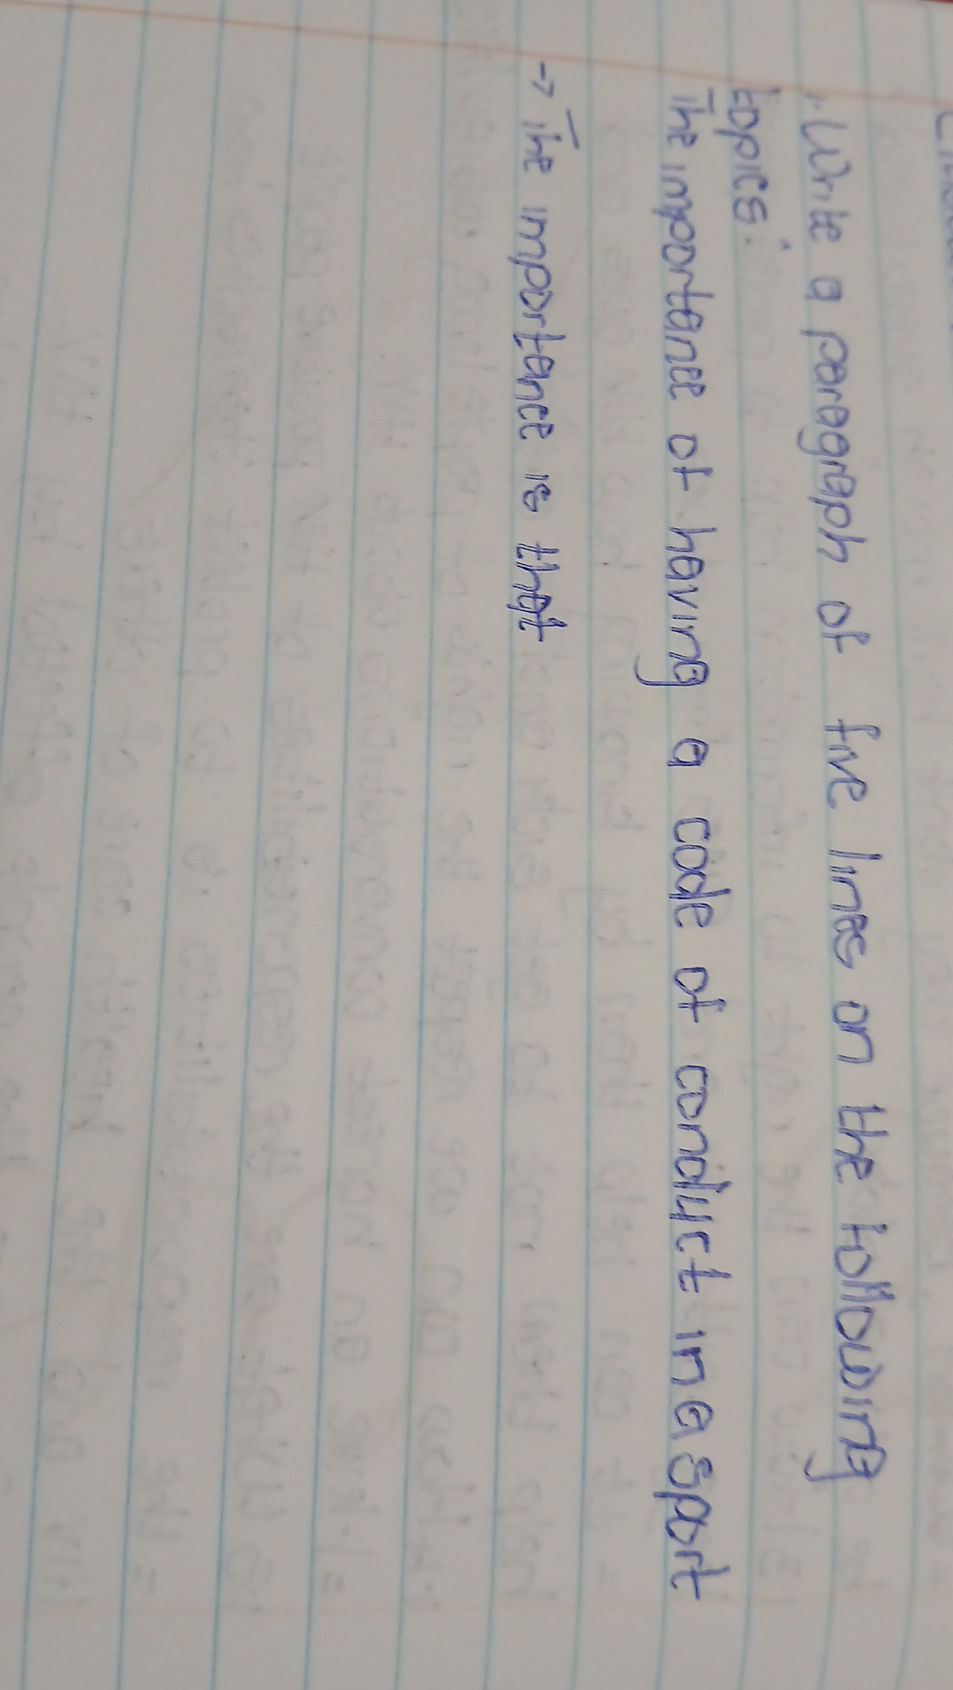 Write a paragraph of five lines on the following
topics.
The importance of having a code of conduct in a sport
→ The importance is that